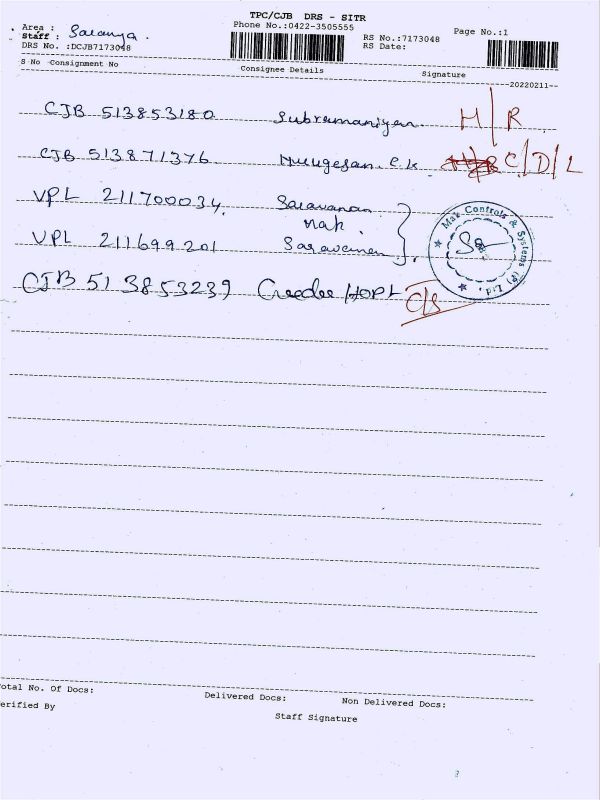 TPC/CJB DRS - SITR
Phone No.:0422-3505555
Area :
Staff : Saranya.
DRS No. :DCJB7173048
RS No.:7173048
RS Date:
Page No.:1
S No Consignment No Consignee Details Signature
--20220211--
CJB 513853180 Subramaniyan H/R
CJB 513871376 Murugesan.C.K. C/D/L
VPL 211700034. Saravanan
Mak.
VPL 211699201 Saravanan
Mak Controls & Systems (P) Ltd.
CJB 513853239 Creedee HOPL C/S
otal No. Of Docs: Delivered Docs: Non Delivered Docs:
erified By Staff Signature